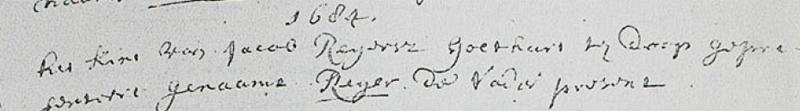 1684.
het kint van Jacob Reyersz Goethart ten doop gepre-
senteert genaamt Reyer. de vader present